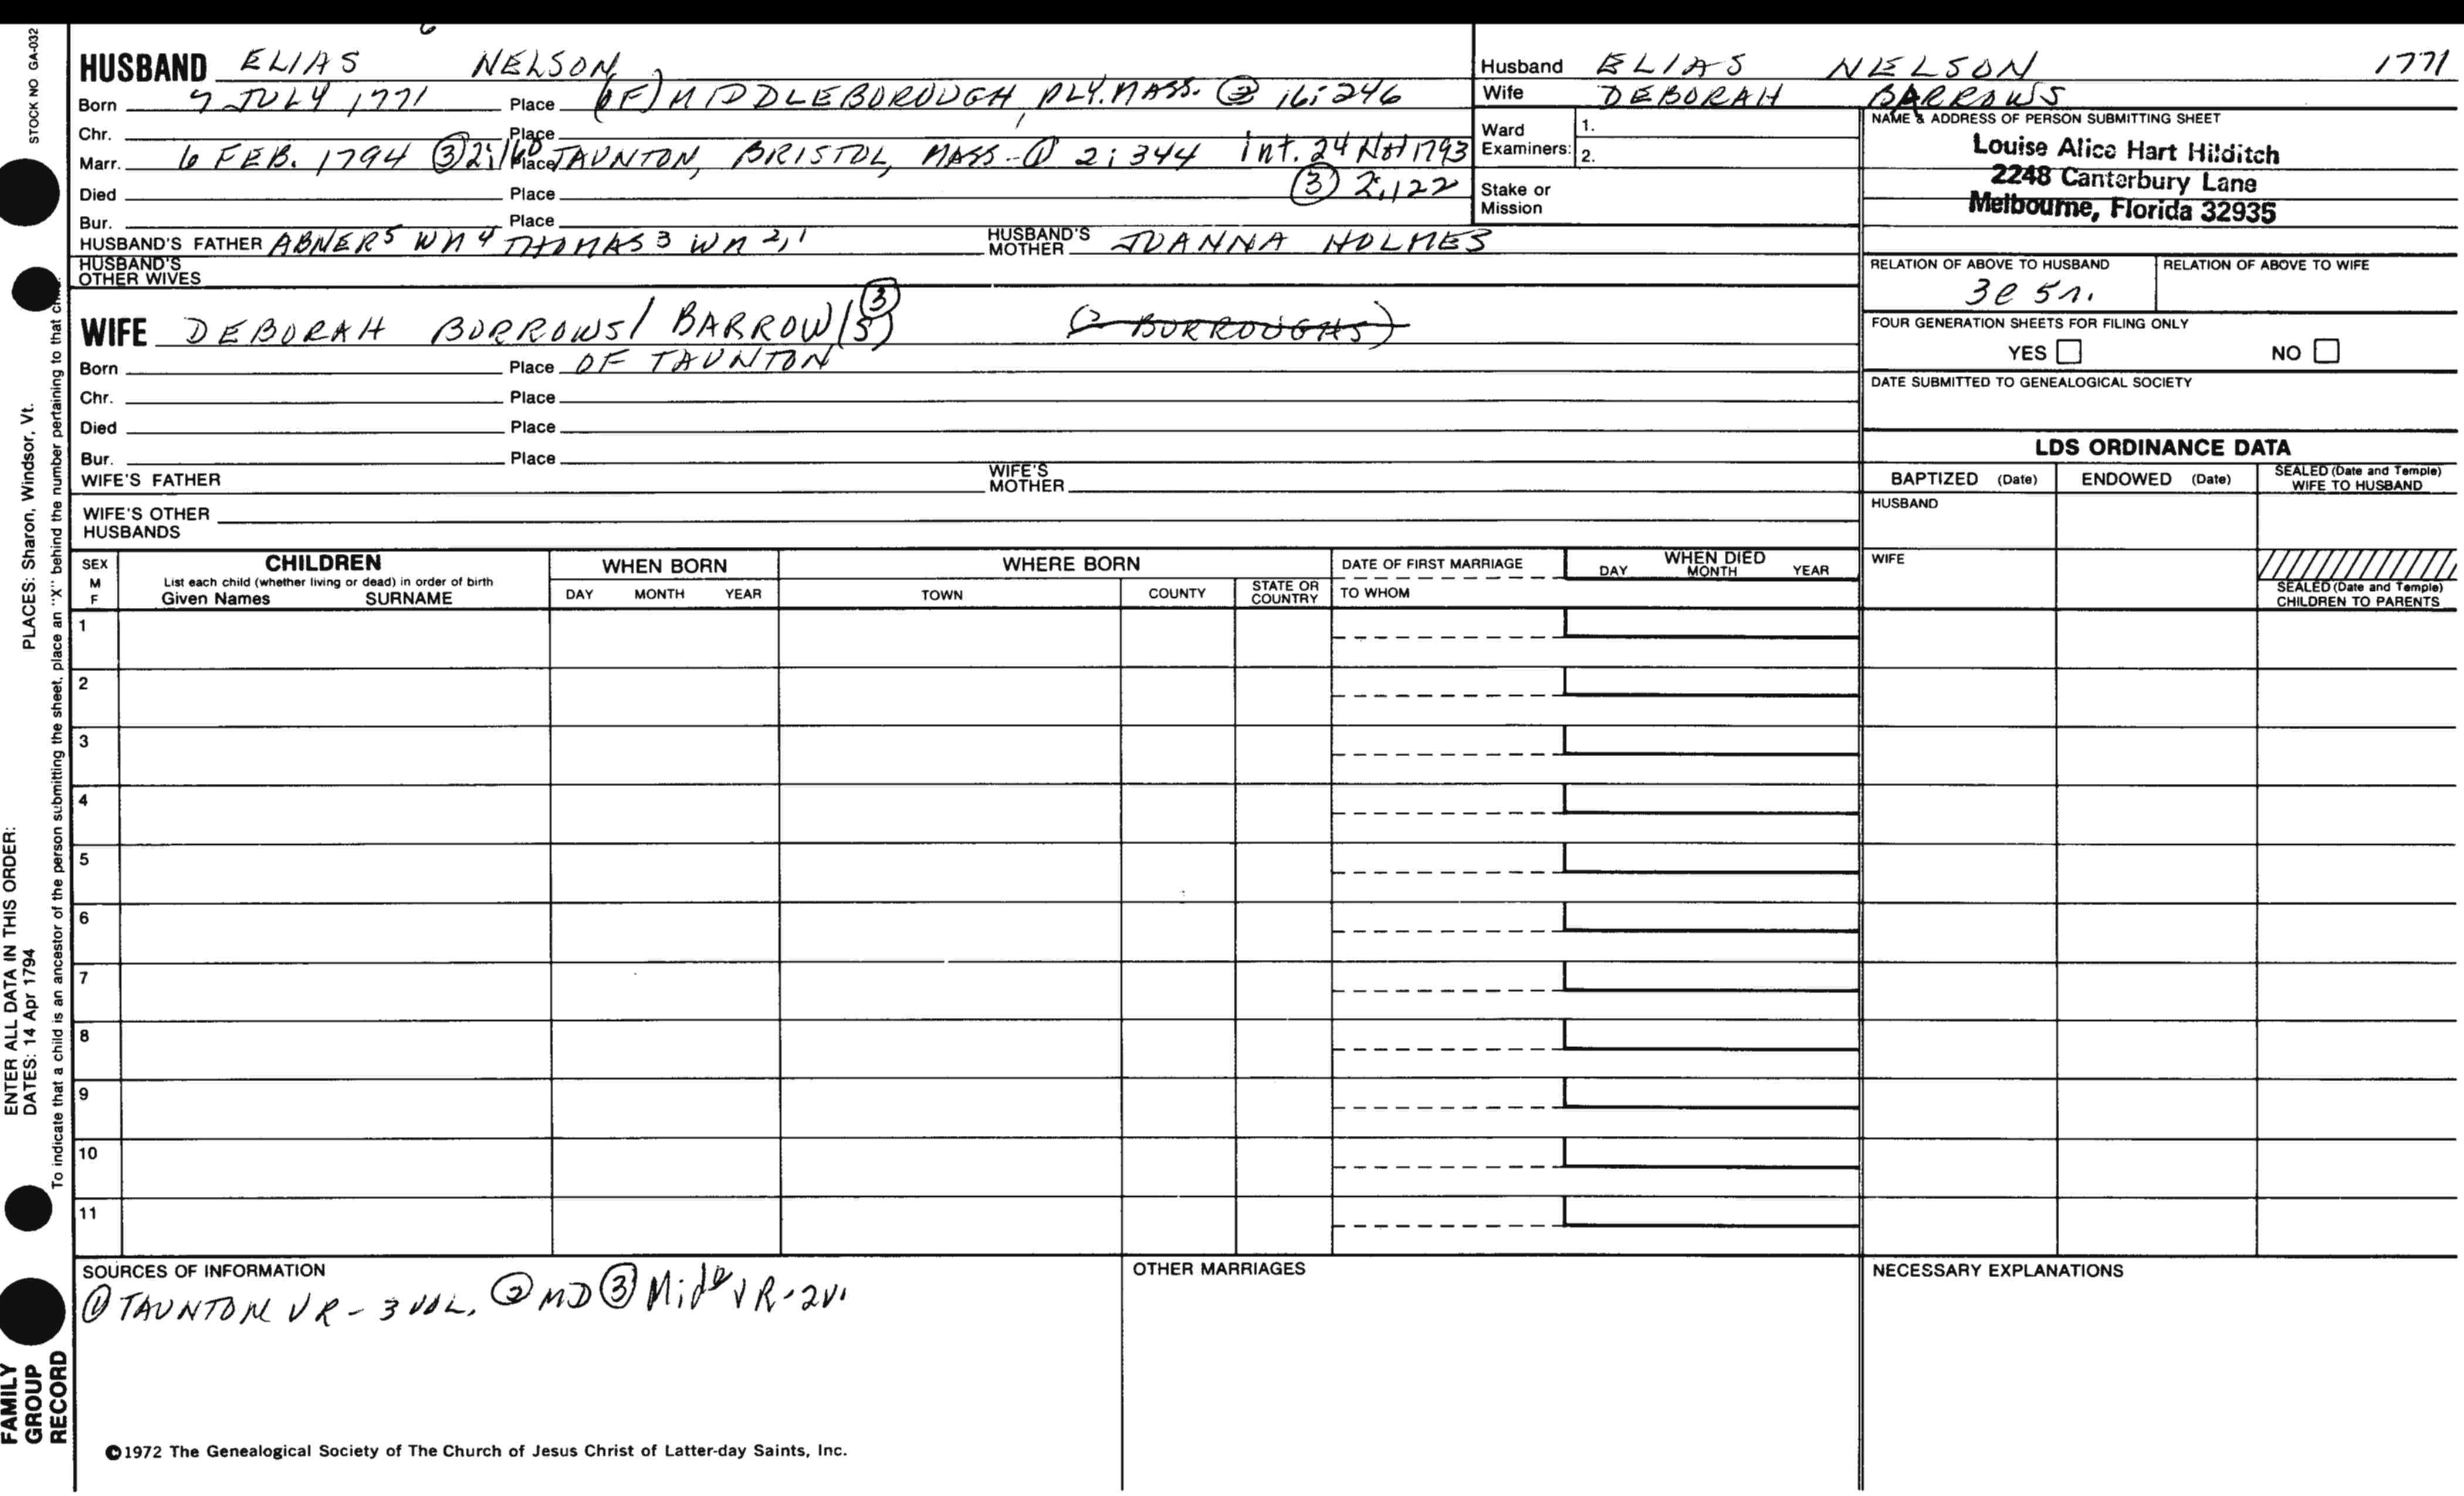 STOCK NO GA-032
HUSBAND ELIAS NELSON
Born 7 JULY 1771 Place (OF) MIDDLEBOROUGH, PLY. MASS. ② 16:246
Chr. Place
Marr. 6 FEB. 1794 ③ 2:168 Place TAUNTON, BRISTOL, MASS - ① 2:344 int. 24 Nov 1793
Died Place ③ 2:122
Bur. Place
HUSBAND'S FATHER ABNER5 Wm 4 THOMAS 3 Wm 2,1 HUSBAND'S MOTHER JOANNA HOLMES
HUSBAND'S OTHER WIVES
WIFE DEBORAH BORROWS / BARROW(S) ③ (? BURROUGHS)
Born Place OF TAUNTON
Chr. Place
Died Place
Bur. Place
WIFE'S FATHER WIFE'S MOTHER
WIFE'S OTHER HUSBANDS
Husband ELIAS NELSON 1771
Wife DEBORAH BARROWS
Ward Examiners: 1.
2.
Stake or Mission
NAME & ADDRESS OF PERSON SUBMITTING SHEET
Louise Alice Hart Hilditch
2248 Canterbury Lane
Melbourne, Florida 32935
RELATION OF ABOVE TO HUSBAND RELATION OF ABOVE TO WIFE
3c 5r.
FOUR GENERATION SHEETS FOR FILING ONLY
YES NO
DATE SUBMITTED TO GENEALOGICAL SOCIETY
LDS ORDINANCE DATA
BAPTIZED (Date) ENDOWED (Date) SEALED (Date and Temple) WIFE TO HUSBAND
HUSBAND
WIFE
SEALED (Date and Temple) CHILDREN TO PARENTS
SEX M F CHILDREN WHEN BORN WHERE BORN DATE OF FIRST MARRIAGE WHEN DIED
List each child (whether living or dead) in order of birth
Given Names SURNAME DAY MONTH YEAR TOWN COUNTY STATE OR COUNTRY TO WHOM DAY MONTH YEAR
1
2
3
4
5
6
7
8
9
10
11
SOURCES OF INFORMATION
① TAUNTON VR - 3 VOL. ② MD ③ Mid VR - 2v.
OTHER MARRIAGES
NECESSARY EXPLANATIONS
©1972 The Genealogical Society of The Church of Jesus Christ of Latter-day Saints, Inc.
FAMILY GROUP RECORD
ENTER ALL DATA IN THIS ORDER:
DATES: 14 Apr 1794 PLACES: Sharon, Windsor, Vt.
To indicate that a child is an ancestor of the person submitting the sheet, place an "X" behind the number pertaining to that